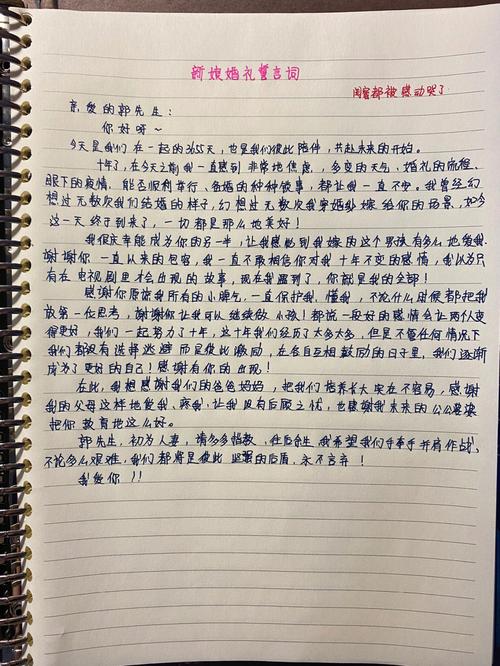 新娘婚礼誓言词
闺蜜都被感动哭了
亲爱的郭先生：
你好呀～
今天是我们在一起的3655天，也是我们彼此陪伴，共赴未来的开始。
十年了，在今天之前我一直感到非常地焦虑，多变的天气、婚礼的流程、
眼下的疫情，能否顺利举行、备婚的种种琐事，都让我一直不安。我曾经幻
想过无数次我们结婚的样子，幻想过无数次我穿婚纱嫁给你的场景，如今
这一天终于到来了，一切都是那么地美好！
我很庆幸能成为你的另一半，让我感觉到我嫁的这个男孩有多么地爱我。
谢谢你一直以来的包容，我一直不敢相信你对我十年不变的感情，我以为只
有在电视剧里才会出现的故事，现在我遇到了，你就是我的全部！
感谢你原谅我所有的小脾气，一直保护我、懂我，不论什么时候都把我
放第一位思考，谢谢你让我可以继续做小孩！都说一段好的感情会让两个人变
得更好，我们一起努力了十年，这十年我们经历了太多太多，但是不管任何情况下
我们都没有选择逃避而是彼此激励，在各自互相鼓励的日子里，我们逐渐
成为了更好的自己！感谢有你的出现！
在此，我想感谢我们的爸爸妈妈，把我们培养长大实在不容易，感谢
我的父母这样地爱我、疼我，让我没有后顾之忧，也感谢我未来的公公婆婆
把你教育地这么好。
郭先生，初为人妻，请多多指教，往后余生，我希望我们手牵手并肩作战，
不论多么艰难，我们都将是彼此坚强的后盾，永不言弃！
我爱你！！